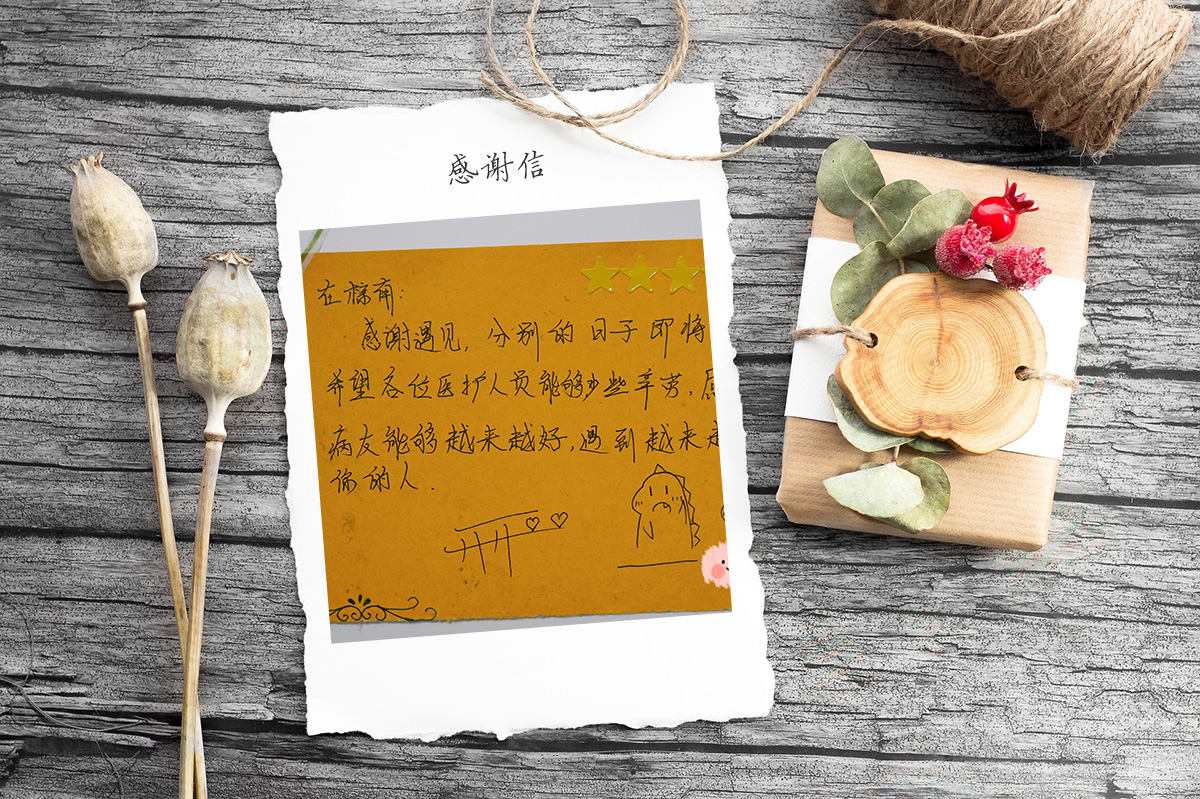 感谢信
在棕南:
感谢遇见,分别的日子即将
希望各位医护人员能够少些辛劳,愿
病友能够越来越好,遇到越来
你的人.